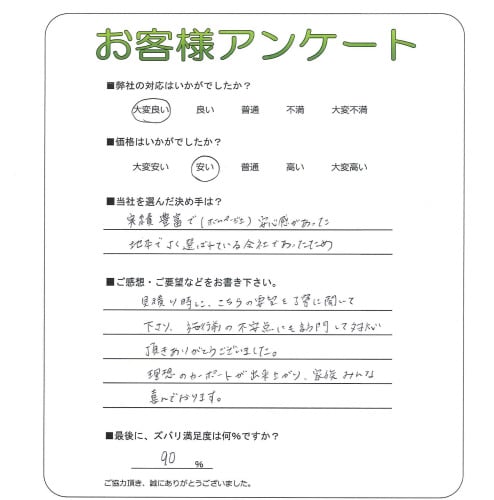 お客様アンケート
■弊社の対応はいかがでしたか？
大変良い 良い 普通 不満 大変不満
■価格はいかがでしたか？
大変安い 安い 普通 高い 大変高い
■当社を選んだ決め手は？
実績豊富で(ホームページ上) 安心感があった
地本でよく選ばれている会社であったため
■ご感想・ご要望などをお書き下さい。
見積り時に、こちらの要望を丁寧に聞いて
下さり、施行前の不安点にも訪問して対応
頂きありがとうございました。
理想のカーポートが出来上がり、家族みんな
喜んでおります。
■最後に、ズバリ満足度は何%ですか？
90 %
ご協力頂き、誠にありがとうございました。